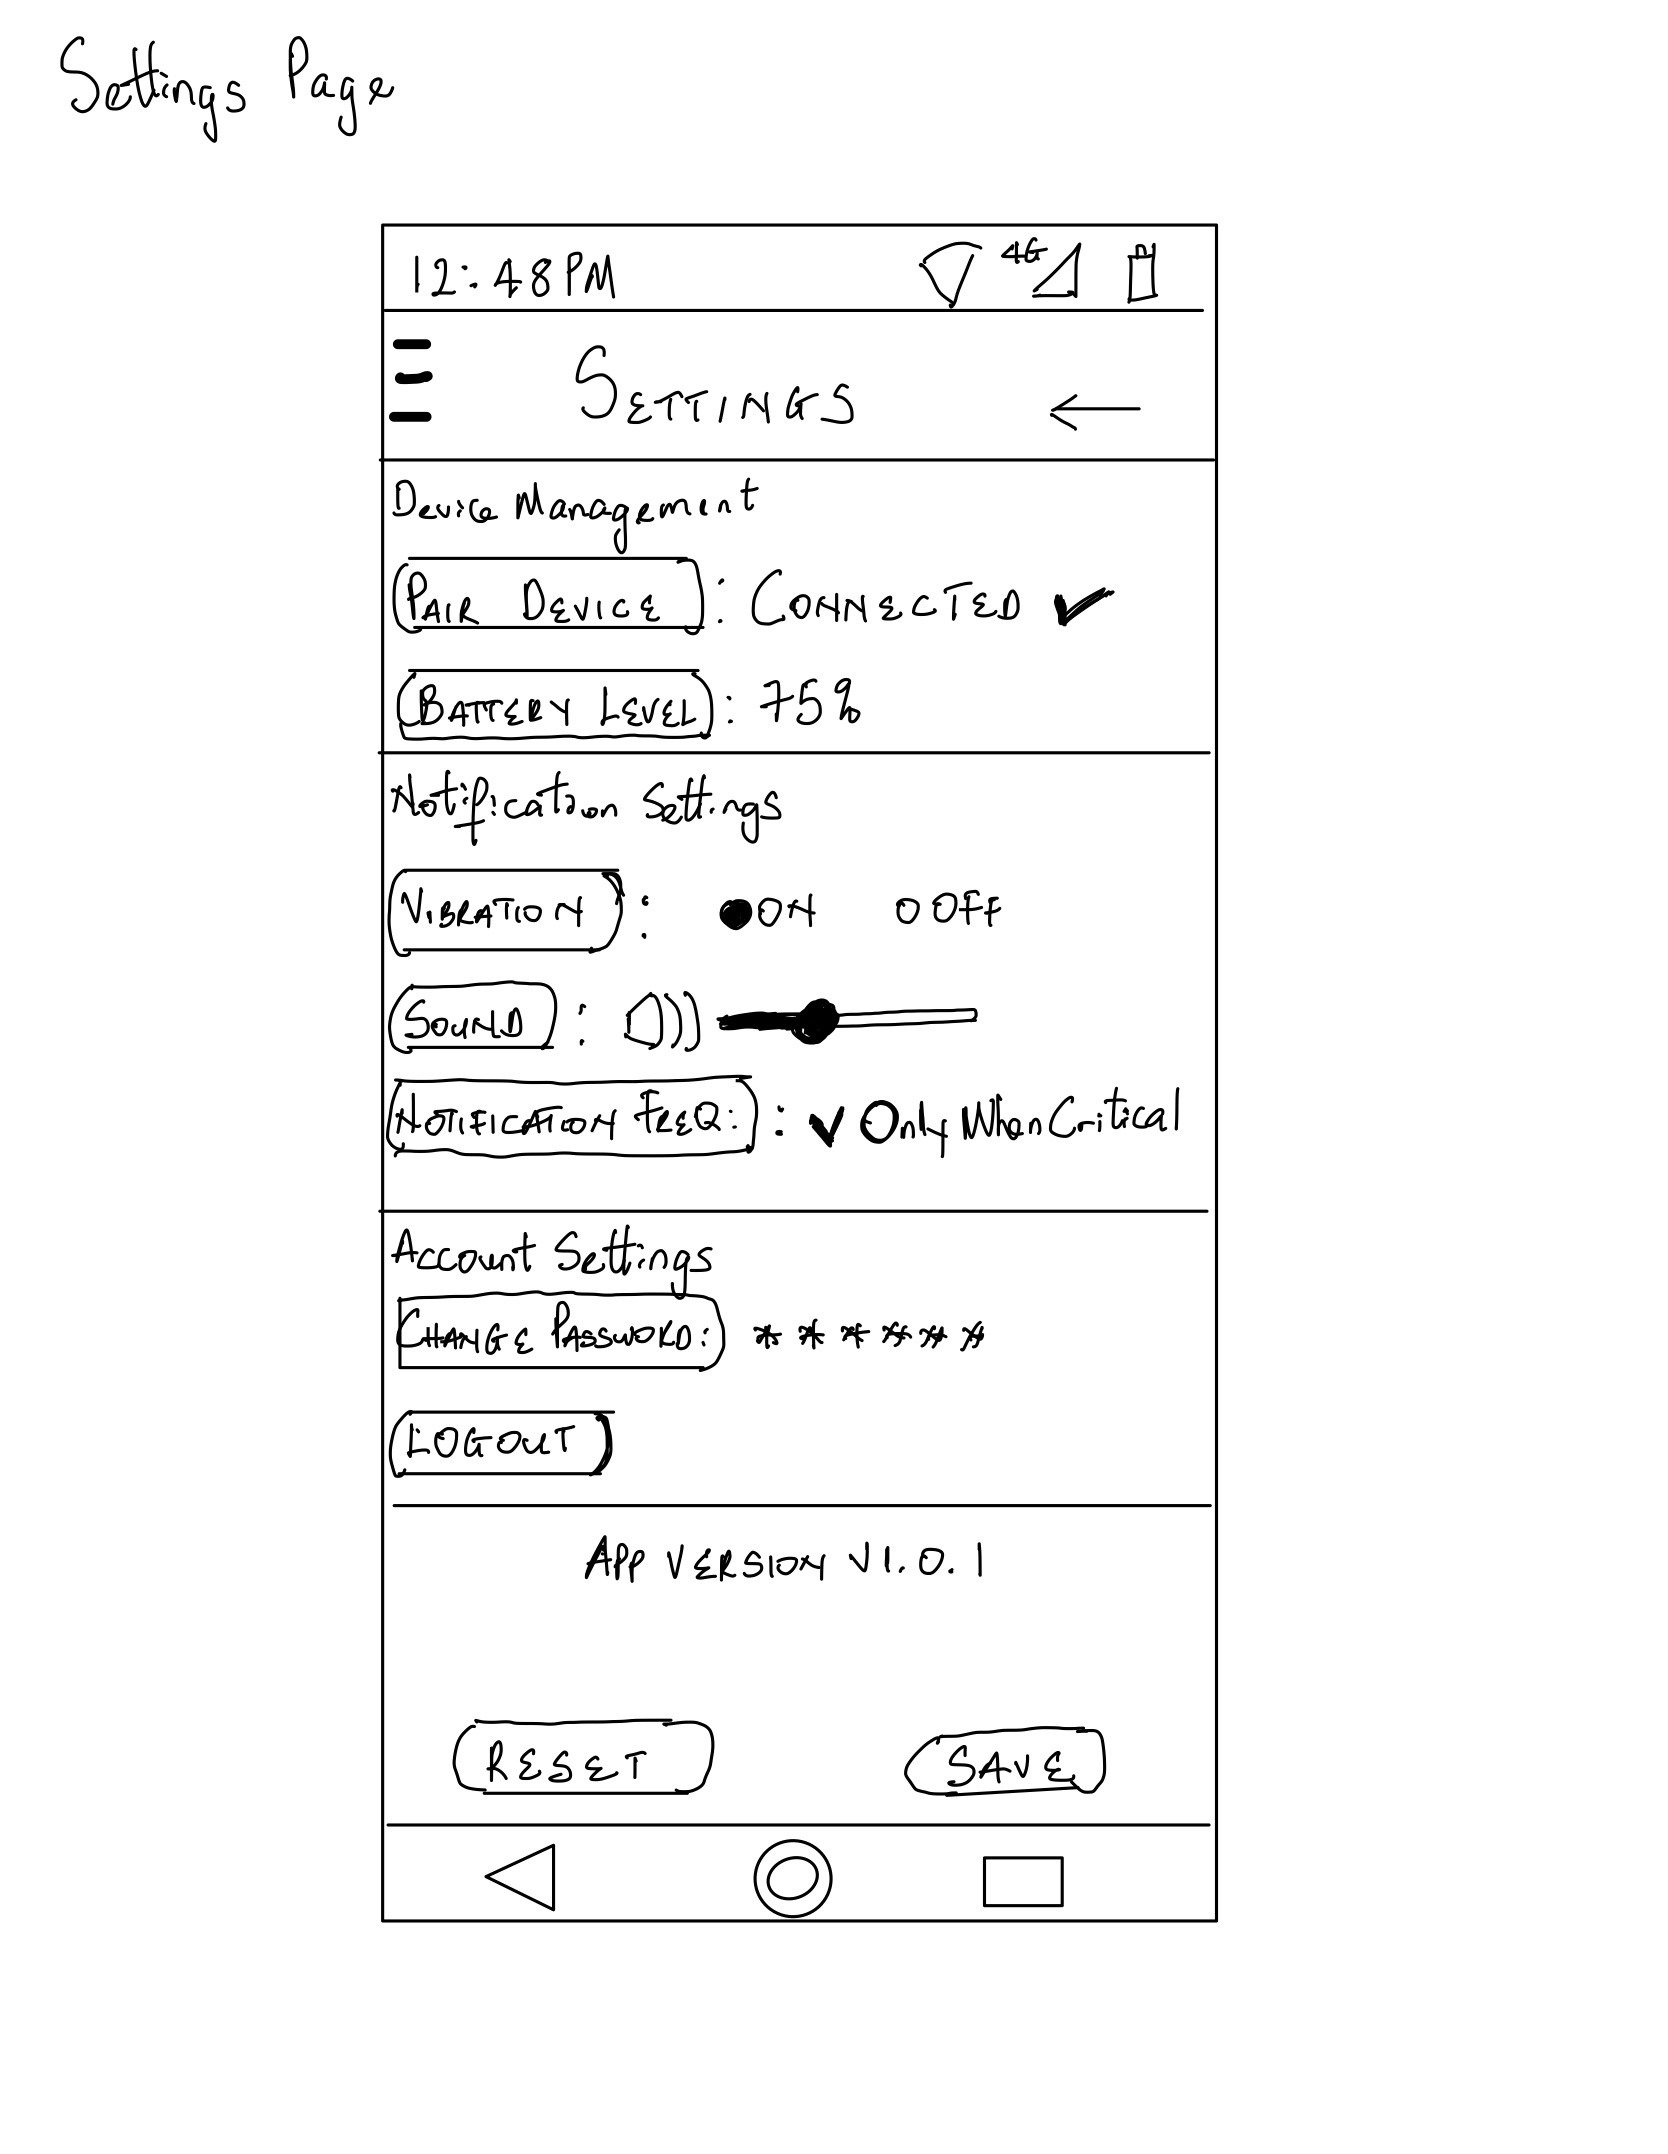 Settings Page
12:48PM 4G
SETTINGS
Device Management
PAIR DEVICE : CONNECTED ✔
BATTERY LEVEL : 75%
Notification Settings
VIBRATION : ON OFF
SOUND :
NOTIFICATION FREQ: : ✔ Only When Critical
Account Settings
CHANGE PASSWORD: * * * * * *
LOGOUT
APP VERSION V1.0.1
RESET SAVE